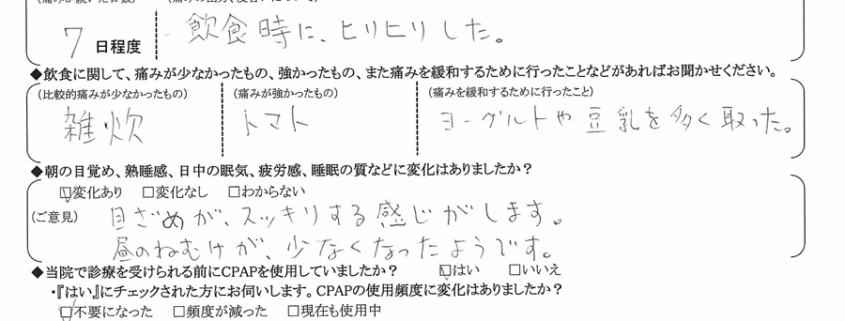 7 日程度 飲食時に、ヒリヒリした。
◆飲食に関して、痛みが少なかったもの、強かったもの、また痛みを緩和するために行ったことなどがあればお聞かせください。
(比較的痛みが少なかったもの) (痛みが強かったもの) (痛みを緩和するために行ったこと)
雑炊 トマト ヨーグルトや豆乳を多く取った。
◆朝の目覚め、熟睡感、日中の眠気、疲労感、睡眠の質などに変化はありましたか?
☑変化あり □変化なし □わからない
(ご意見) 目ざめが、スッキリする感じがします。
昼のねむけが、少なくなったようです。
◆当院で診療を受けられる前にCPAPを使用していましたか? ☑はい □いいえ
・『はい』にチェックされた方にお伺いします。CPAPの使用頻度に変化はありましたか?
☑不要になった □頻度が減った □現在も使用中